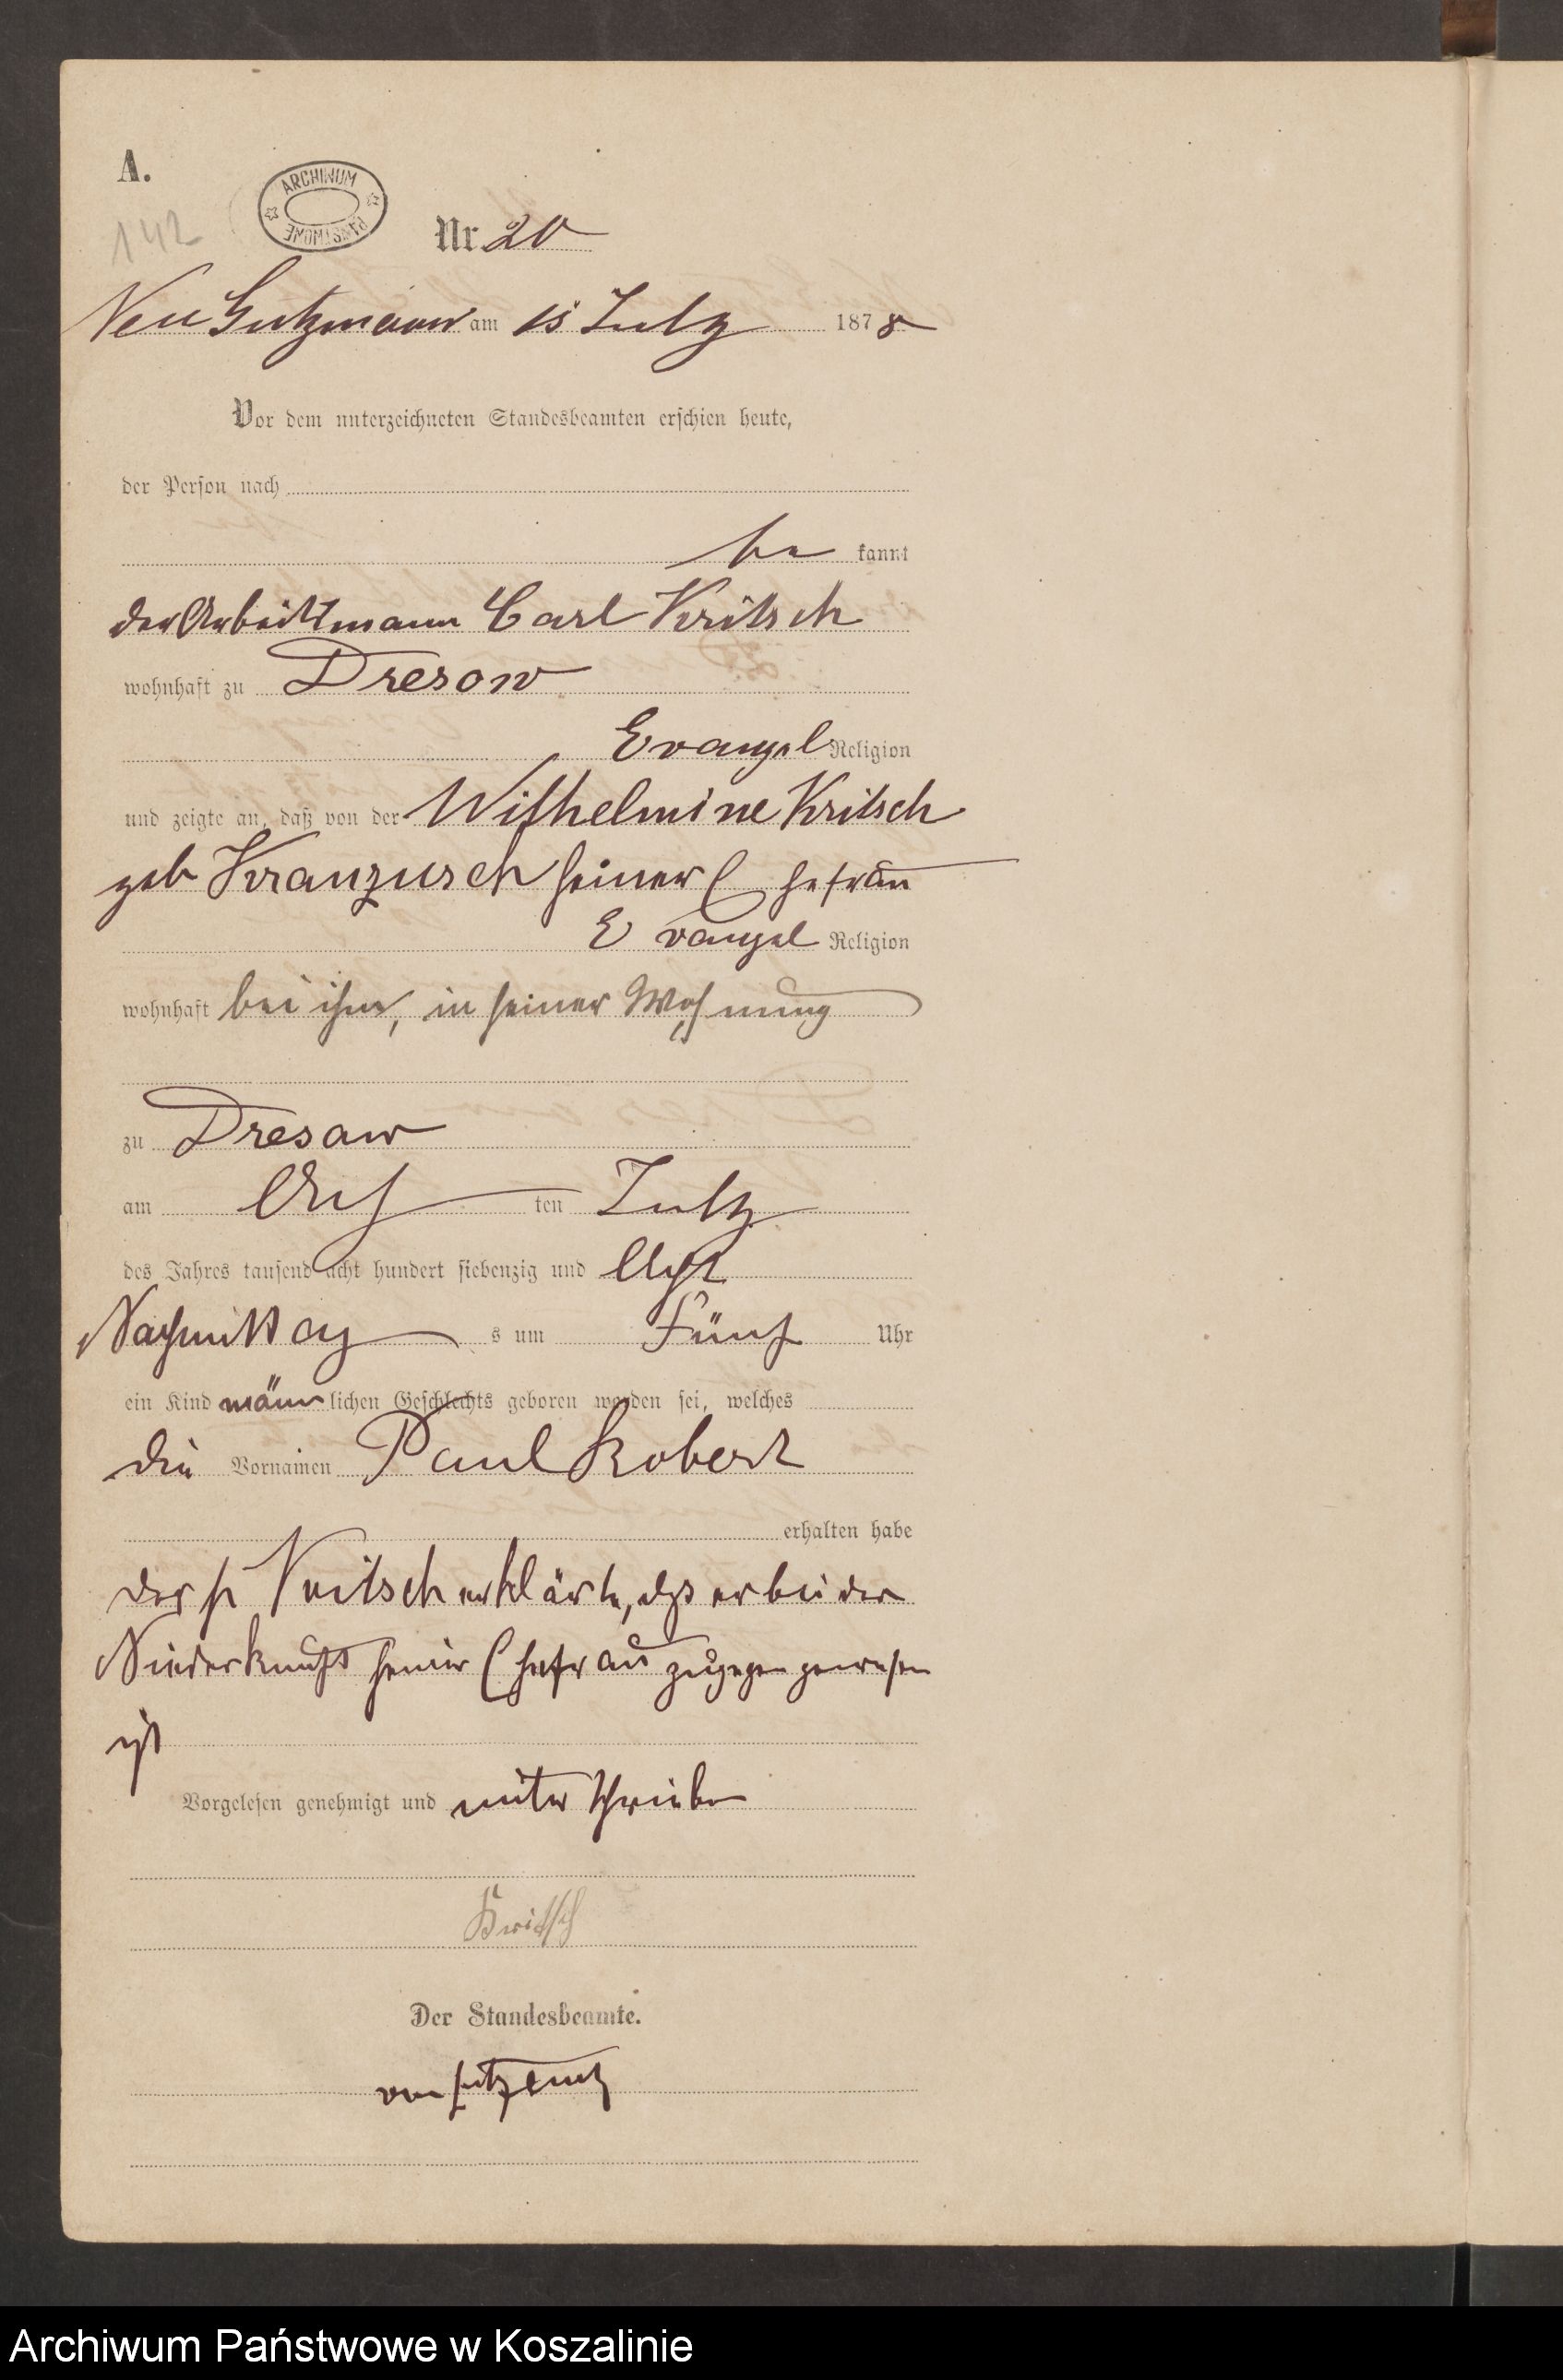 A.
142
ARCHIWUM PAŃSTWOWE
Nr. 20
Neu Gutzmerow am 15 July 1878
Vor dem unterzeichneten Standesbeamten erschien heute,
der Person nach
be kannt
der Arbeitsmann Carl Kritsch
wohnhaft zu Dresow
Evangel Religion
und zeigte an, daß von der Wilhelmine Kritsch
geb Kranzusch seiner Ehefrau
Evangel Religion
wohnhaft bei ihm, in seiner Wohnung
zu Dresow
am Acht ten July
des Jahres tausend acht hundert siebenzig und Acht
Nachmittag s um Fünf Uhr
ein Kind männ lichen Geschlechts geboren worden sei, welches
die Vornamen Paul Robert
erhalten habe
Der Kritsch erklärte, daß er bei der
Niederkunft seiner Ehefrau zugegen gewesen
ist
Vorgelesen genehmigt und unterschrieben
Kritsch
Der Standesbeamte.
von
Archiwum Państwowe w Koszalinie